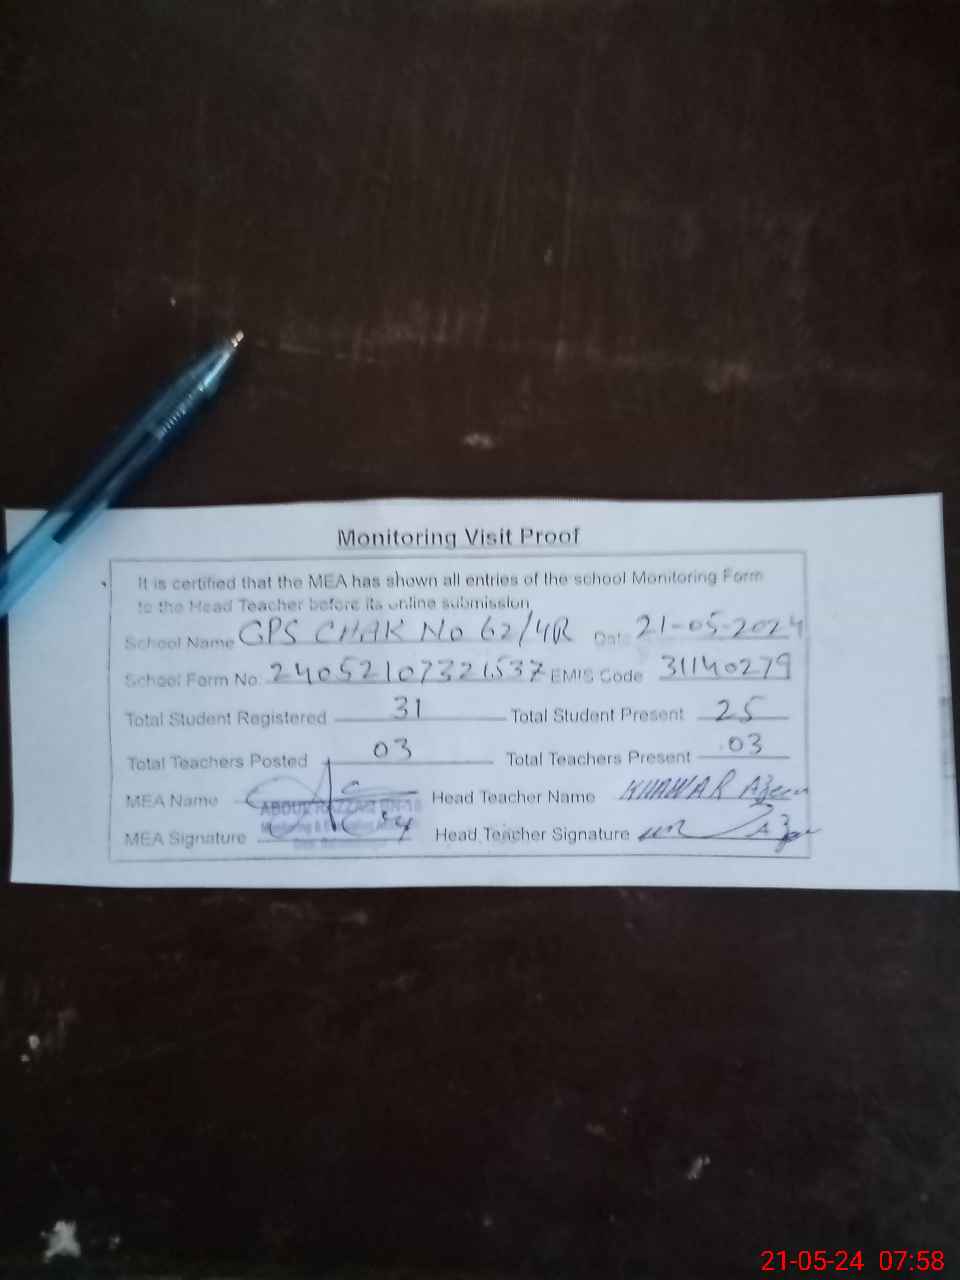 Monitoring Visit Proof
It is certified that the MEA has shown all entries of the school Monitoring Form
to the Head Teacher before its online submission
School Name GPS CHAK No 62/4R Date 21-05-2024
School Form No. 24052107321537 EMIS Code 31140279
Total Student Registered 31 Total Student Present 25
Total Teachers Posted 03 Total Teachers Present 03
MEA Name ABDUL RAZZAQ Head Teacher Name KHAWAR Azeem
MEA Signature Head Teacher Signature
21-05-24 07:58